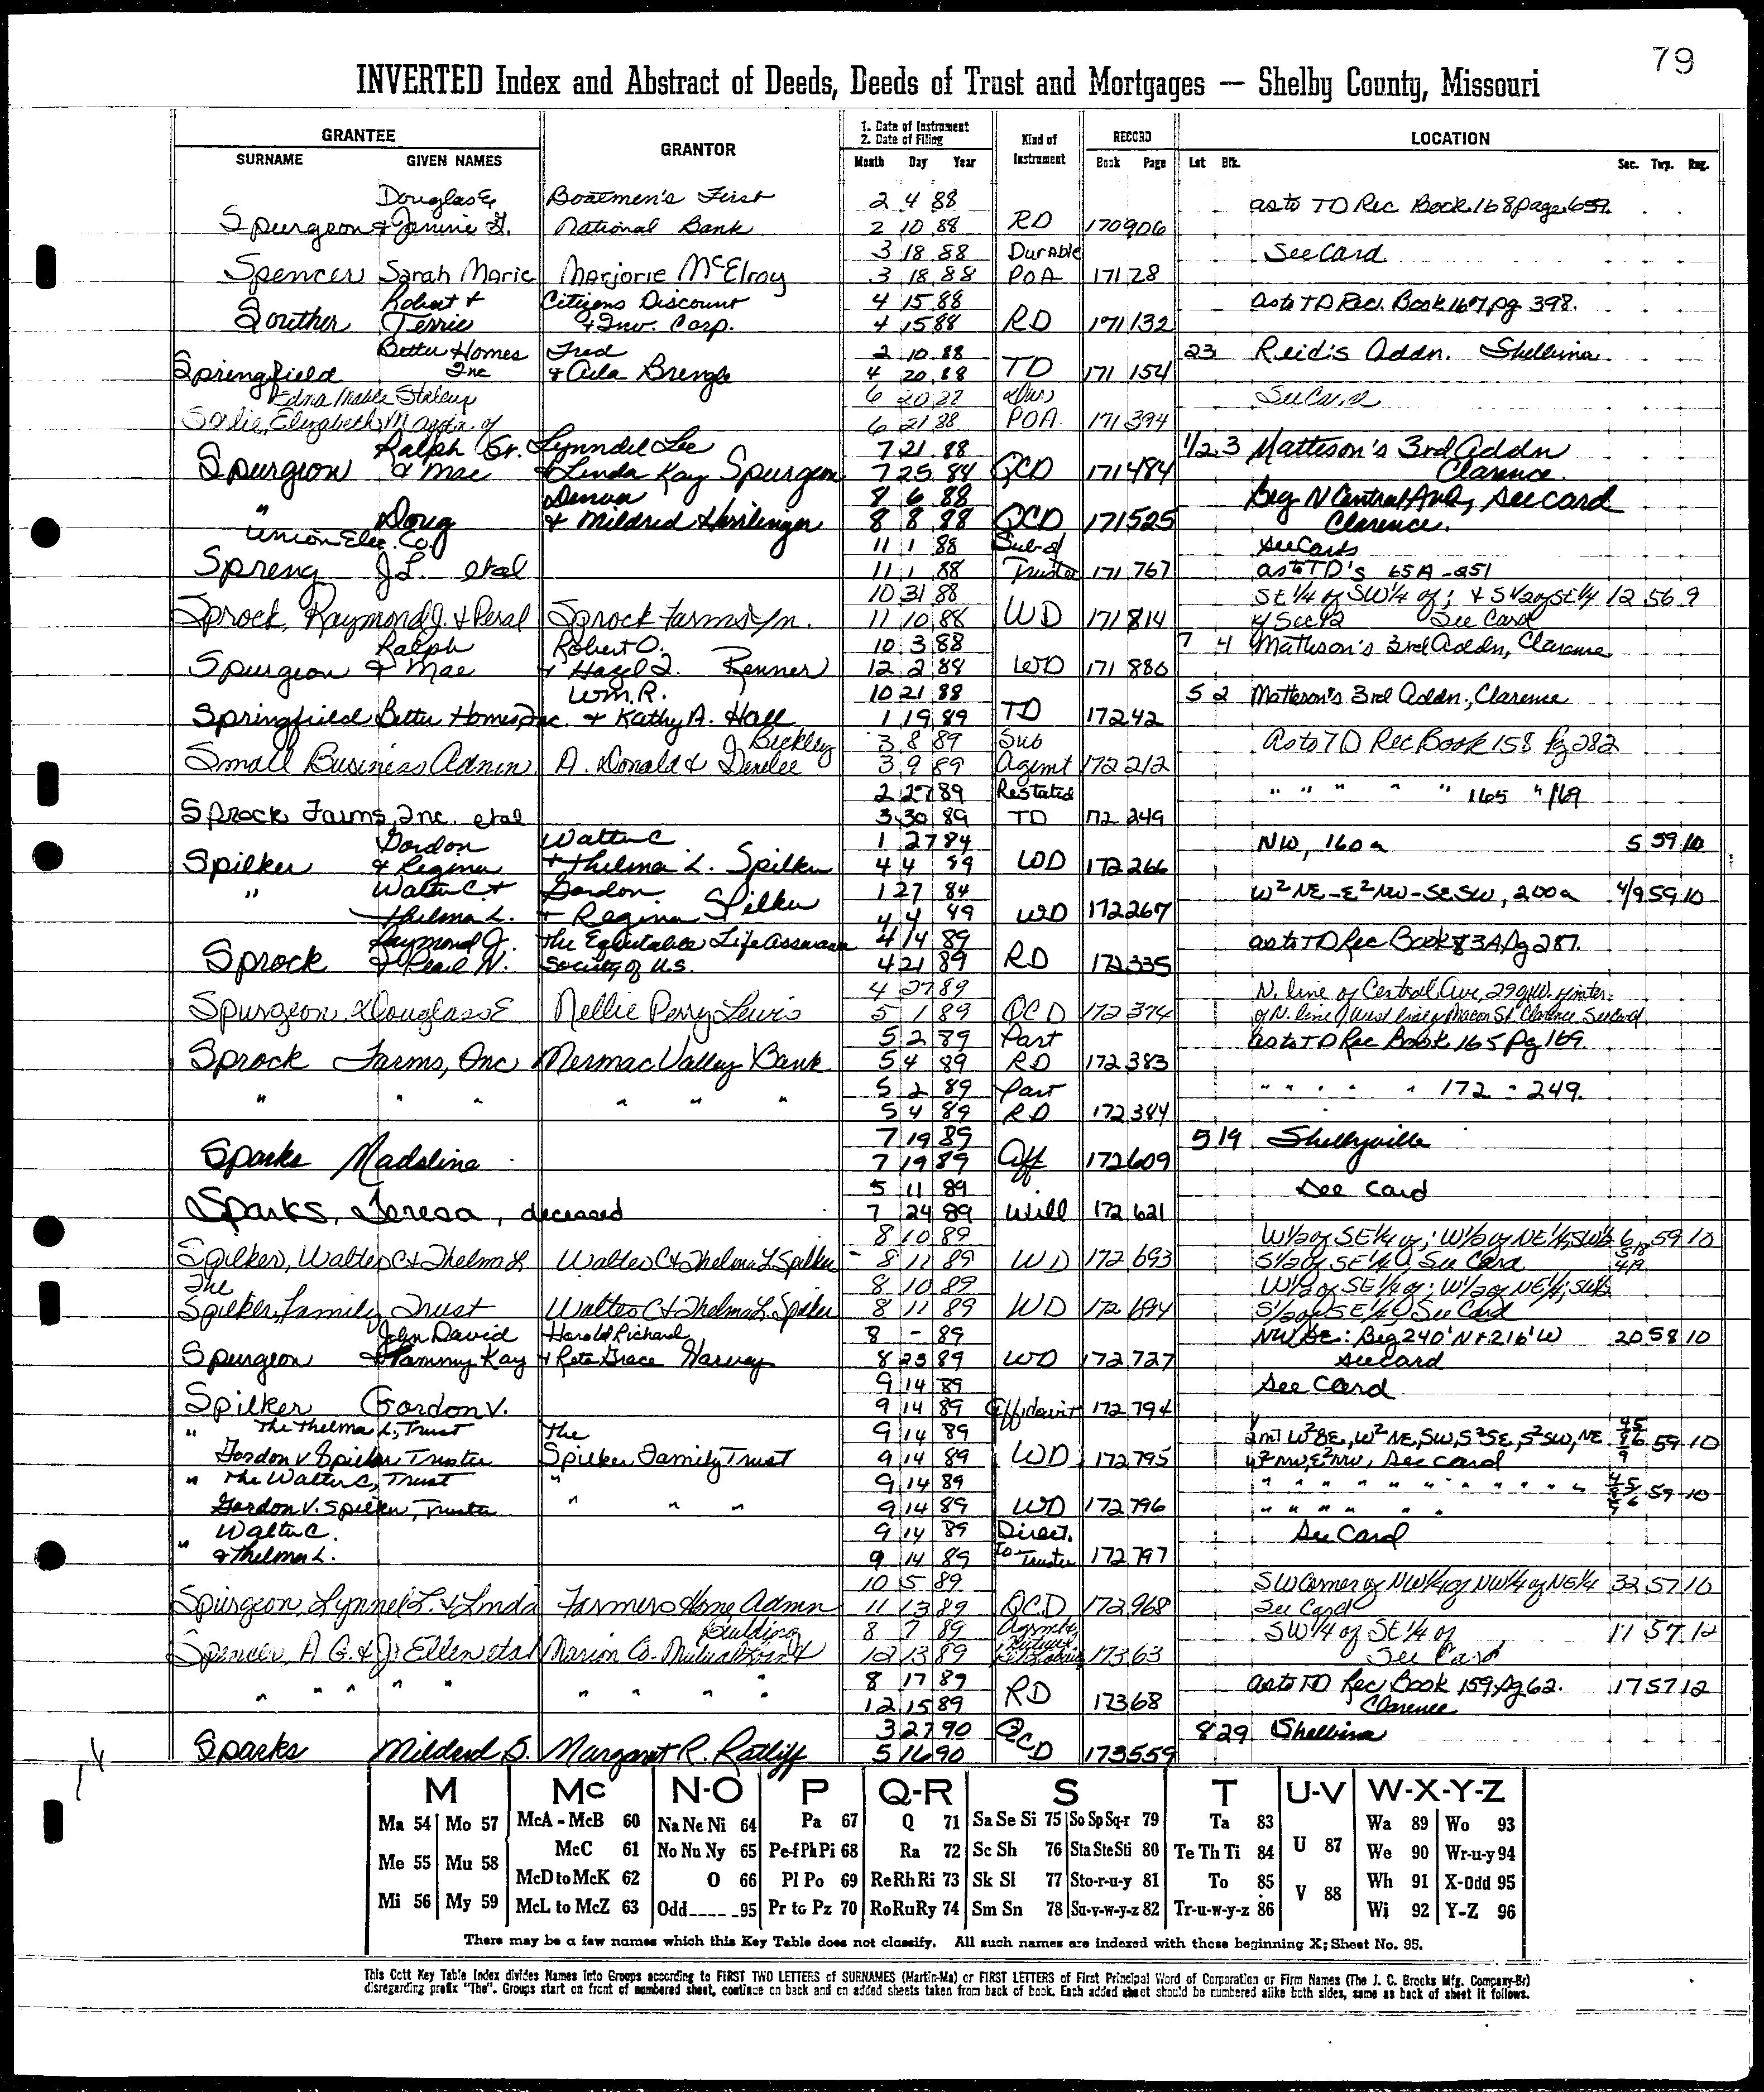 79
INVERTED Index and Abstract of Deeds, Deeds of Trust and Mortgages — Shelby County, Missouri
GRANTEE GRANTOR 1. Date of Instrument 2. Date of Filing Kind of Instrument RECORD LOCATION
SURNAME GIVEN NAMES Month Day Year Book Page Lot Blk. Sec. Twp. Rng.
Douglas E. Boatmen's First 2 4 88 as to TD Rec Book 168 page 657.
Spurgeon & Janine G. National Bank 2 10 88 RD 170 906
3 18 88 Durable See Card
Spencer Sarah Marie Marjorie McElroy 3 18 88 POA 171 28
Robert & Citizens Discount 4 15 88 as to TD Rec. Book 167 pg 398.
Souther Terrie & Inv. Corp. 4 15 88 RD 171 132
Better Homes Fred 2 10 88 23 Reid's Addn. Shelbina
Springfield Inc & Aila Brengle 4 20 88 TD 171 154
Edna Mable Stalcup 6 20 88 Dur See Card
Sorlie, Elizabeth, of 6 21 88 POA 171 394
Ralph Gr. Lynndel Lee 7 21 88 1/2 3 Matteson's 3rd Addn
Spurgeon & Mae & Linda Kay Spurgeon 7 25 88 QCD 171 484 Clarence.
Denver 8 6 88 Beg N Central Ave, see card
" Doug & Mildred 8 8 88 QCD 171 525 Clarence.
Union Elec. Co. 11 1 88 Sub of See Cards
Spreng J L. etal 11 1 88 Trustee 171 767 as to TD's 65A-251
10 31 88 SE 1/4 of SW 1/4 of; & S 1/2 of SE 1/4 12 56 9
Sprock, Raymond J. & Peral Sprock Farms In. 11 10 88 WD 171 814 of Sec 12 See Card
Ralph Robert O. 10 3 88 7 4 Matheson's 3rd Addn, Clarence
Spurgeon & Mae & Hazel I. Renner 12 2 88 WD 171 880
Wm. R. 10 21 88 5 2 Matteson's 3rd Addn., Clarence
Springfield Better Homes, Inc. & Kathy A. Hall 1 19 89 TD 172 42
Beckley 3 8 89 Sub As to TD Rec Book 158 Pg 282
Small Business Admin A. Donald & J Denelee 3 9 89 Agemt 172 212
2 27 89 Restated " " " " " 165 " 169
Sprock Farms, Inc. etal 3 30 89 TD 172 249
Gordon Walter C. 1 27 84 NW, 160a 5 59 10
Spilker & Regina & Thelma L. Spilker 4 4 89 WD 172 266
" Walter C. & Gordon 1 27 84 W² NE-E² NW-SE SW, 200a 4/9 59 10
Thelma L. & Regina Spilker 4 4 89 WD 172 267
Raymond J. The Equitable Life Assurance 4 14 89 as to TD Rec Book 83A, Pg 287.
Sprock & Pearl N. Society of U.S. 4 21 89 RD 172 335
4 27 89 N. line of Central Ave, 290' W. of inter.
Spurgeon, Douglas E Nellie Perry Lewis 5 1 89 QCD 172 374 of N. line & West line of Macon St. Clarence See Card
5 2 89 Part as to TD Rec Book 165 Pg 169.
Sprock Farms, Inc Mermac Valley Bank 5 4 89 RD 172 383
5 2 89 Part " " " " " 172 " 249.
" " " " " " 5 4 89 RD 172 384
7 19 89 5 19 Shelbyville
Sparks Madaline 7 19 89 Aff. 172 609
5 11 89 See Card
Sparks, Teresa, deceased 7 24 89 Will 172 621
8 10 89 W 1/2 of SE 1/4 of; W 1/2 of NE 1/4, SW 1/4 6 59 10
Spilker, Walter C & Thelma L Walter C & Thelma L Spilker 8 11 89 WD 172 693 S 1/2 of SE 1/4 See Card
The 8 10 89 W 1/2 of SE 1/4 of; W 1/2 of NE 1/4, SW 1/4
Spilker, Family Trust Walter C & Thelma L. Spilker 8 11 89 WD 172 694 S 1/2 of SE 1/4 See Card
John David Harold Richard 8 - 89 NW SE: Beg 240' N & 216' W 20 58 10
Spurgeon & Tammy Kay & Reta Grace Harvey 8 23 89 WD 172 727 see card
9 14 89 See Card
Spilker Gordon V. 9 14 89 Affidavit 172 794
" The Thelma L, Trust The 9 14 89 W² SE, W² NE, SW, S² SE, S² SW, NE 59 10
Gordon V Spilker, Trustee Spilker Family Trust 9 14 89 WD 172 795 E² NW, see card
" The Walter C, Trust " 9 14 89 " " " " " " " " " " " 59 10
Gordon V. Spilker, Trustee " " " 9 14 89 WD 172 796 " " " " " "
" Walter C. 9 14 89 Direct. See Card
& Thelma L. 9 14 89 to Trustee 172 797
10 5 89 SW Corner of NW 1/4 of NW 1/4 of NE 1/4 32 57 10
Spurgeon, Lynnel L. & Linda Farmers Home Admn 11 13 89 QCD 172 968 See Card
Building 8 7 89 SW 1/4 of SE 1/4 of 17 57 12
Spencer, A G. & J. Ellen etal Marion Co. Mutual Loan & 12 13 89 173 63 See Card
8 17 89 as to TD Rec Book 159, Pg 62. 17 57 12
" " " " " " " " " 12 15 89 RD 173 68 Clarence
3 27 90 8 29 Shelbina
Sparks Mildred S. Margaret R. Ratliff 5 16 90 QCD 173 559
M Mc N-O P Q-R S T U-V W-X-Y-Z
Ma 54 Mo 57 McA - McB 60 Na Ne Ni 64 Pa 67 Q 71 Sa Se Si 75 So Sp Sq-r 79 Ta 83 U 87 Wa 89 Wo 93
Me 55 Mu 58 McC 61 No Nu Ny 65 Pe-f Ph Pi 68 Ra 72 Sc Sh 76 Sta Ste Sti 80 Te Th Ti 84 We 90 Wr-u-y 94
McD to McK 62 O 66 Pl Po 69 Re Rh Ri 73 Sk Sl 77 Sto-r-u-y 81 To 85 V 88 Wh 91 X-Odd 95
Mi 56 My 59 McL to McZ 63 Odd-----95 Pr to Pz 70 Ro Ru Ry 74 Sm Sn 78 Su-v-w-y-z 82 Tr-u-w-y-z 86 Wi 92 Y-Z 96
There may be a few names which this Key Table does not classify. All such names are indexed with those beginning X; Sheet No. 95.
This Cott Key Table Index divides Names into Groups according to FIRST TWO LETTERS of SURNAMES (Martin-Ma) or FIRST LETTERS of First Principal Word of Corporation or Firm Names (The J. C. Brooks Mfg. Company-Br)
disregarding prefix "The". Groups start on front of numbered sheet, continue on back and on added sheets taken from back of book. Each added sheet should be numbered alike both sides, same as back of sheet it follows.